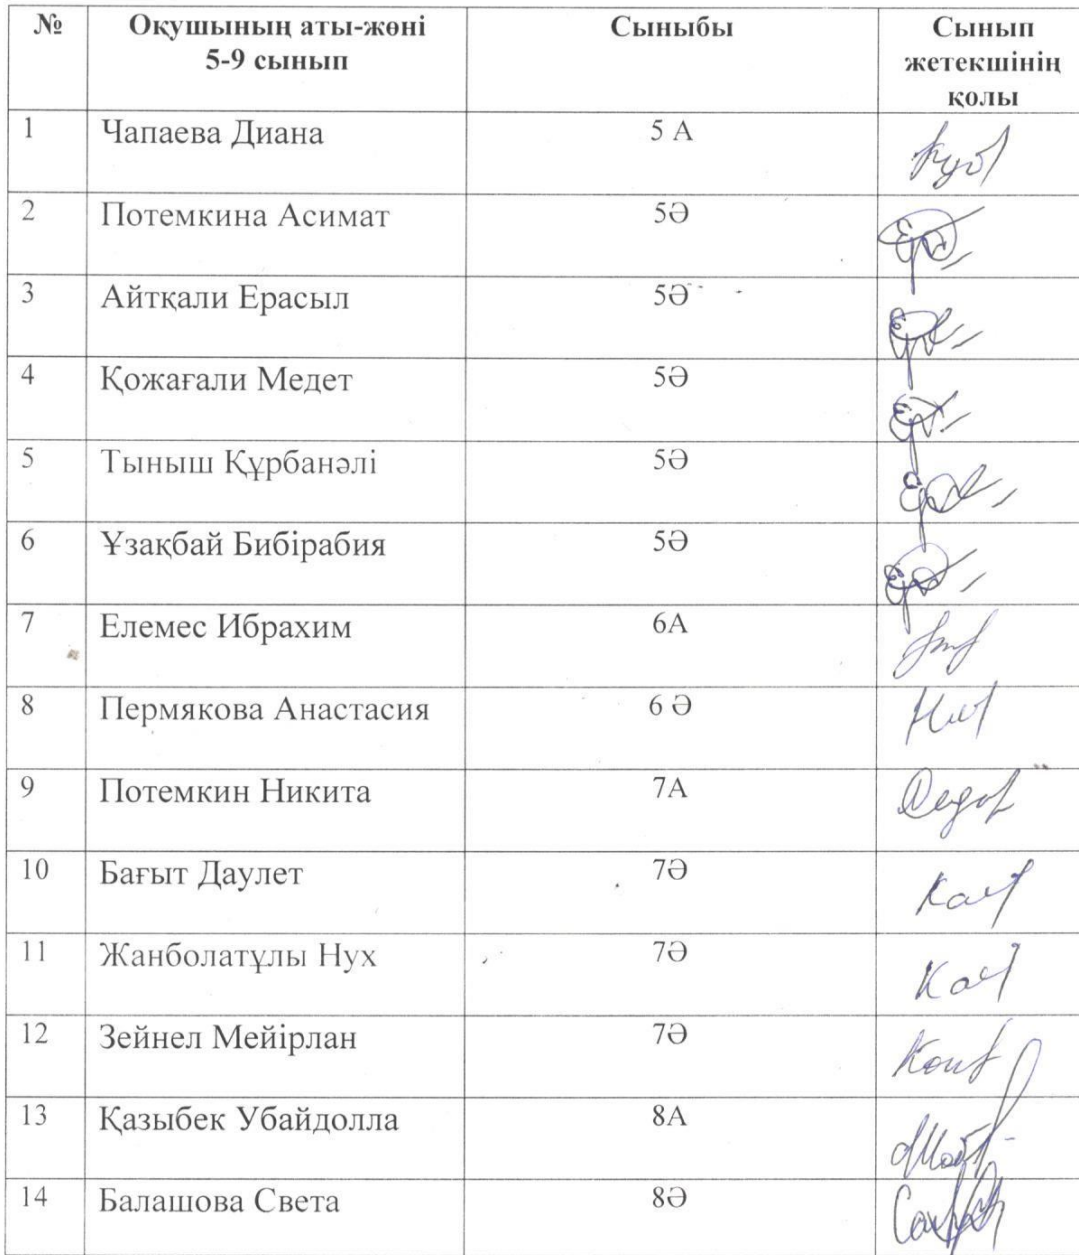 № Оқушының аты-жөні Сыныбы Сынып
5-9 сынып жетекшінің
қолы
1 Чапаева Диана 5 А
2 Потемкина Асимат 5Ә
3 Айтқали Ерасыл 5Ә
4 Қожағали Медет 5Ә
5 Тыныш Құрбанәлі 5Ә
6 Ұзақбай Бибірабия 5Ә
7 Елемес Ибрахим 6А
8 Пермякова Анастасия 6 Ә
9 Потемкин Никита 7А
10 Бағыт Даулет 7Ә
11 Жанболатұлы Нух 7Ә
12 Зейнел Мейірлан 7Ә
13 Қазыбек Убайдолла 8А
14 Балашова Света 8Ә